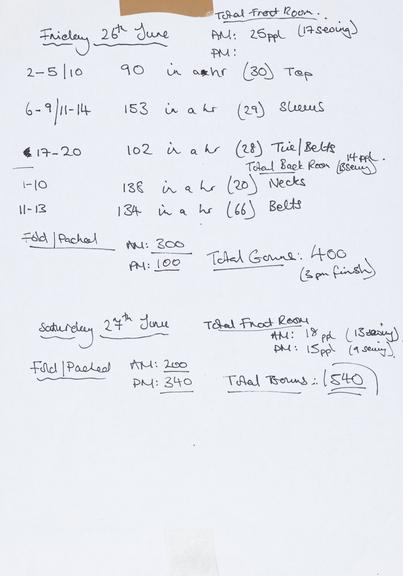 Total Front Room.
Friday 26th June AM: 25ppl (17 sewing)
PM:
2-5/10 90 in a hr (30) Top
6-9/11-14 153 in a hr (29) Sleeves
17-20 102 in a hr (28) Tie/Belts
Total Back Room 14ppl. (8 sewing)
1-10 138 in a hr (20) Necks
11-13 134 in a hr (66) Belts
Fold/Packed AM: 300
PM: 100 Total Gowns: 400
(3pm finish)
Saturday 27th June Total Front Room
AM: 18ppl (13 sewing)
PM: 15ppl (9 sewing).
Fold/Packed AM: 200
PM: 340 Total Gowns: 540